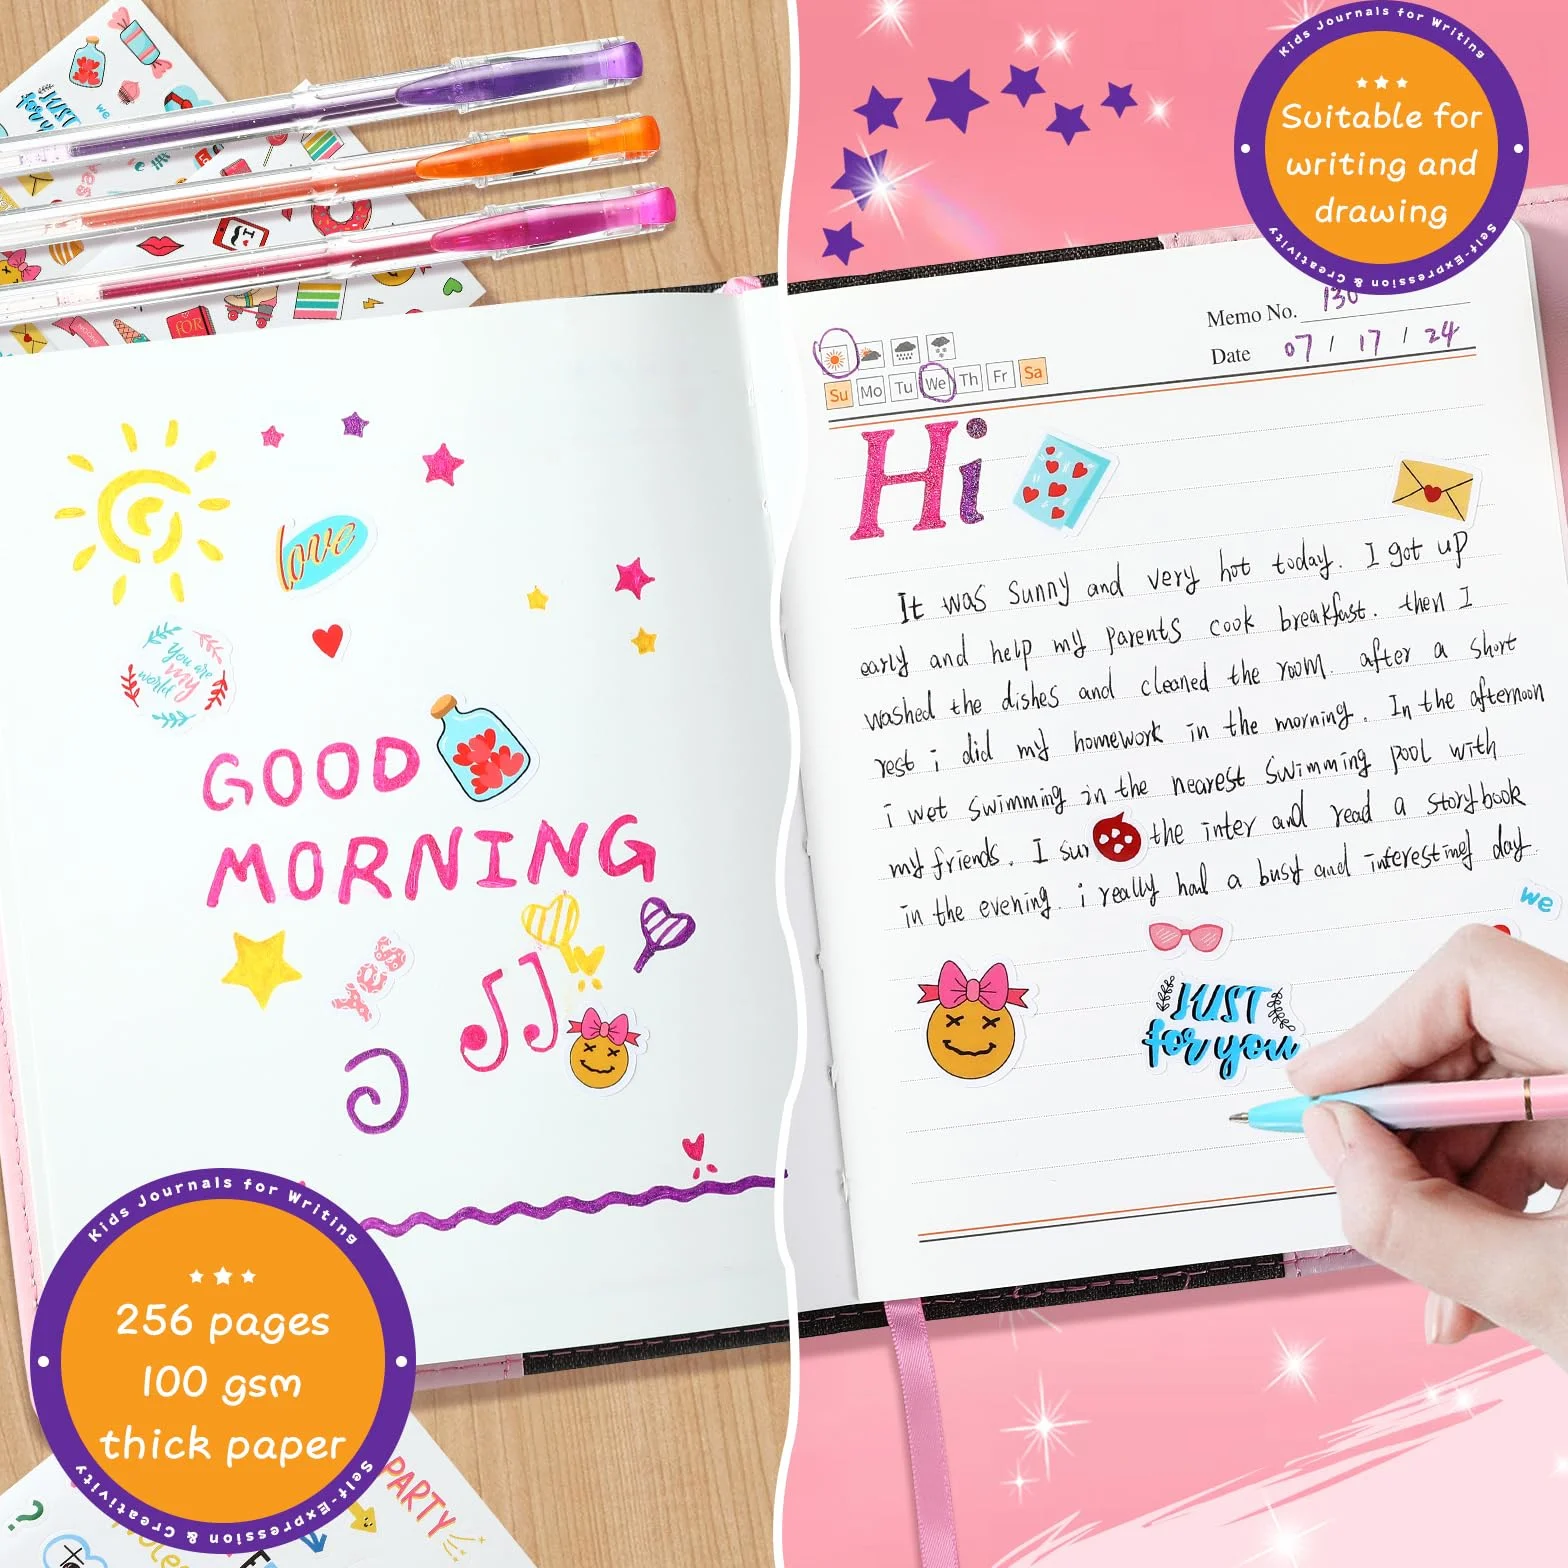 JUST
for y
we
FOR
Kids Journals for Writing
Suitable for
writing and
drawing
Self-Expression & Creativity
Memo No. 130
Date 07 / 17 / 24
Su Mo Tu We Th Fr Sa
Hi
It was sunny and very hot today. I got up
early and help my parents cook breakfast. then I
washed the dishes and cleaned the room. after a short
rest i did my homework in the morning. In the afternoon
i wet swimming in the nearest swimming pool with
my friends. I sur the inter and read a storybook
in the evening. i really had a busy and interesting day.
we
JUST
for you
love
You are
my
world
GOOD
MORNING
yes
Kids Journals for Writing
256 pages
100 gsm
thick paper
Self-Expression & Creativity
PARTY
?